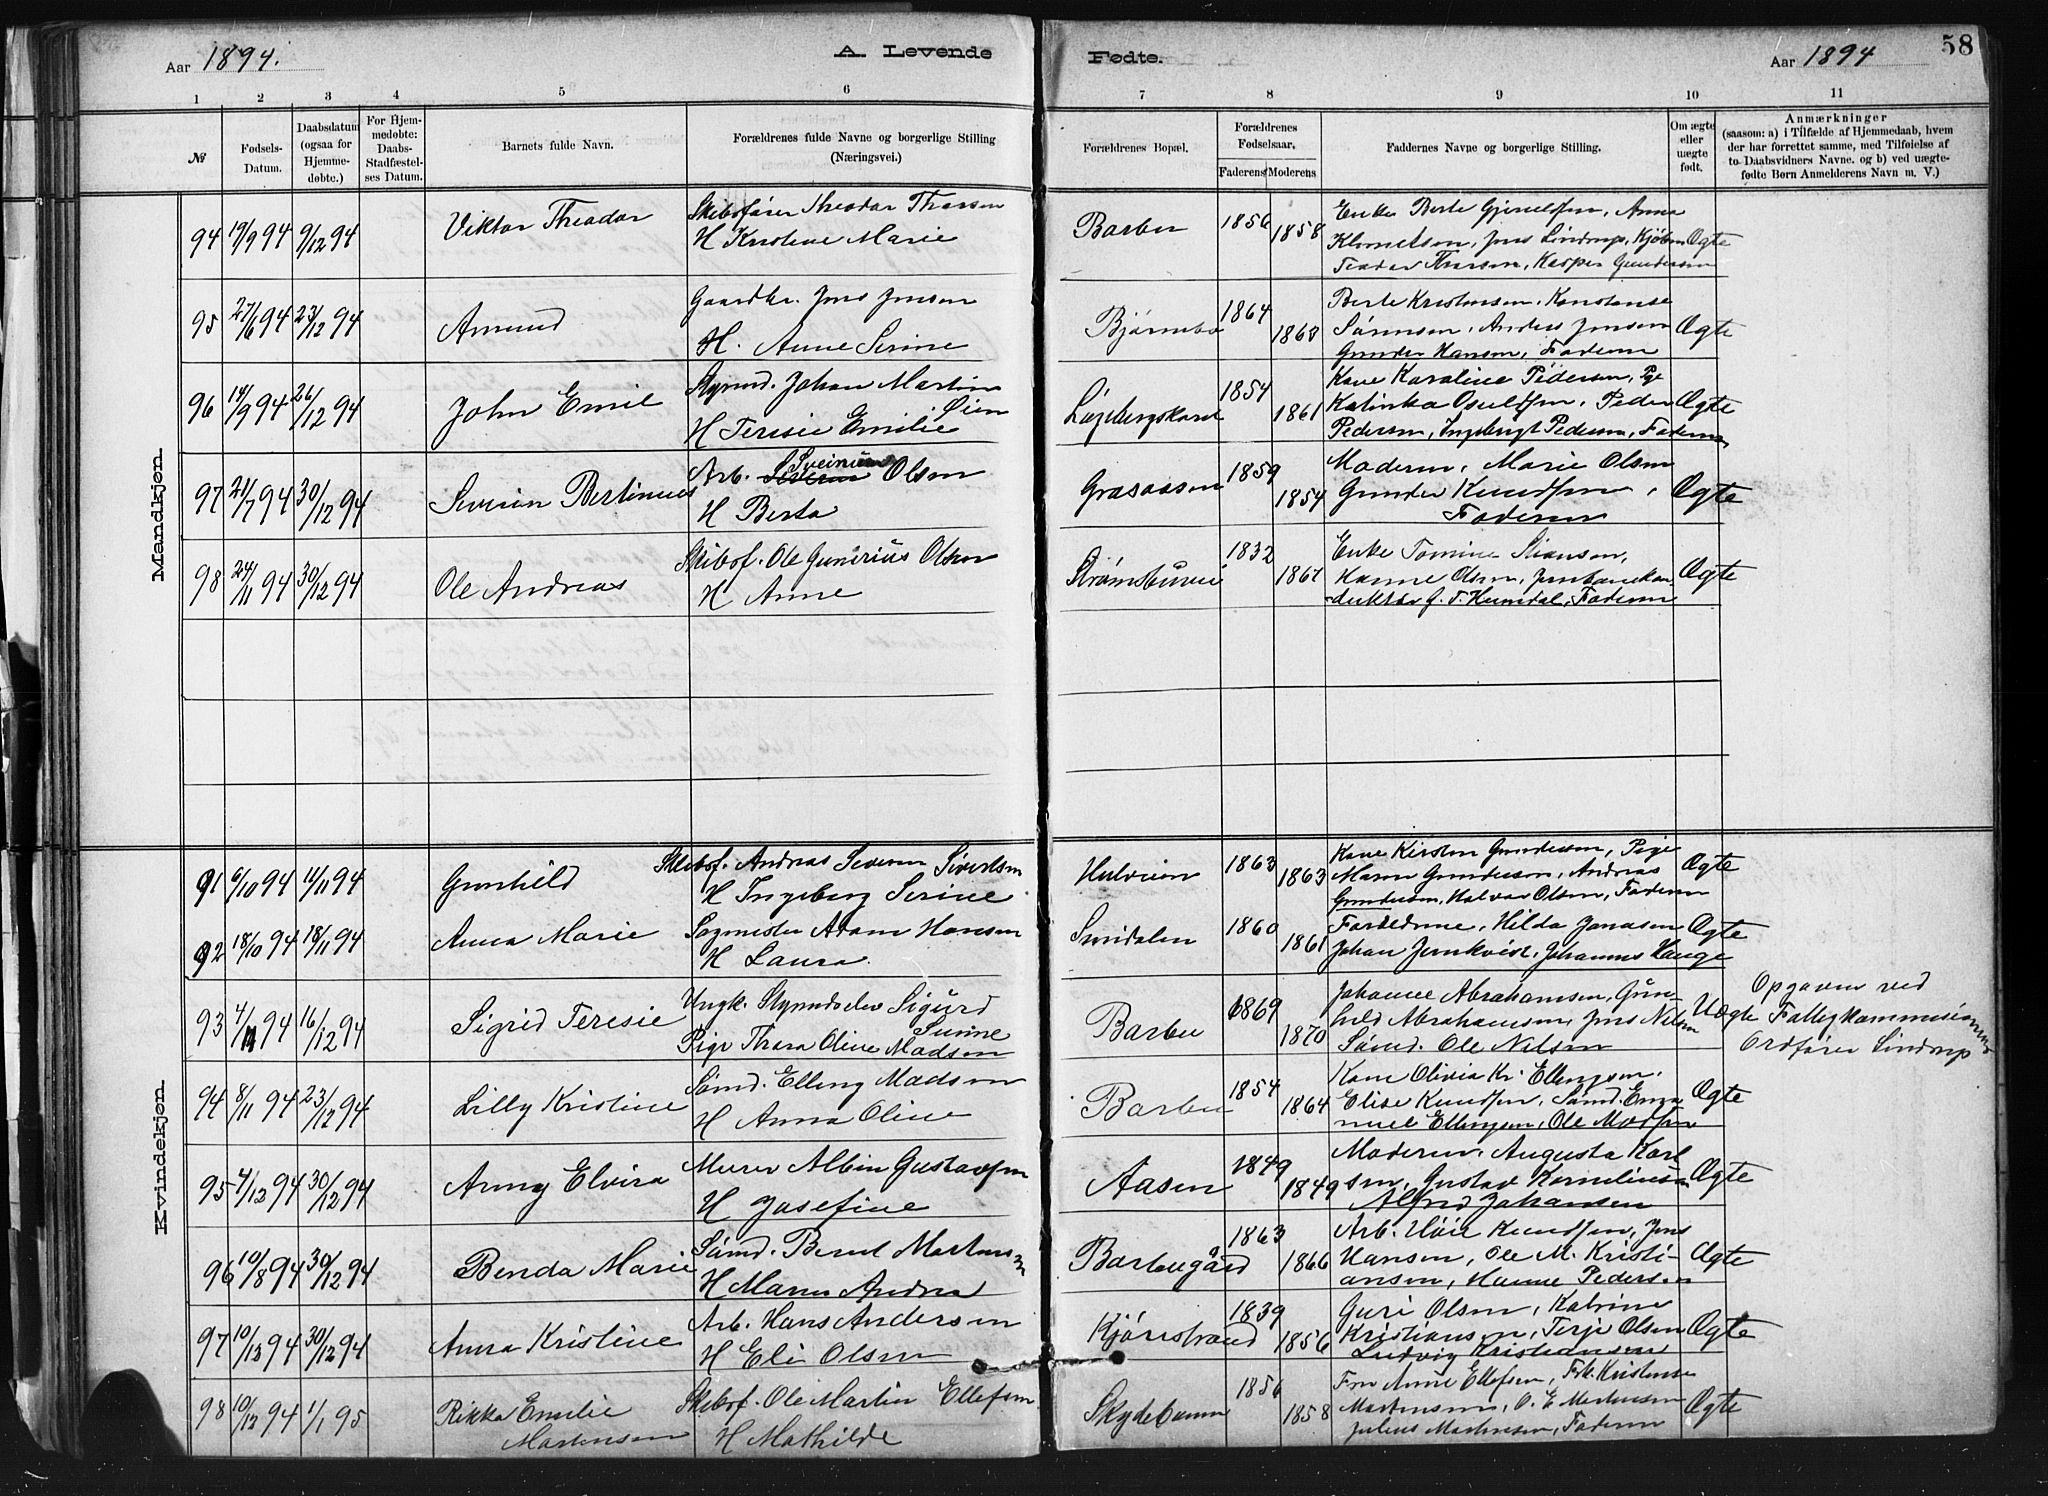 Aar 1894.
A. Levende
Fødte.
Aar 1894
58
1 2 3 4 5 6 7 8 9 10 11
№
Fødsels-
Datum.
Daabsdatum
(ogsaa for
Hjemme-
døbte.)
For Hjem-
medøbte:
Daabs-
Stadfæstel-
ses Datum.
Barnets fulde Navn.
Forældrenes fulde Navne og borgerlige Stilling
(Næringsvei.)
Forældrenes Bopæl.
Forældrenes
Fødselsaar.
Faderens Moderens
Faddernes Navne og borgerlige Stilling.
Om ægte
eller
uægte
født.
Anmærkninger
(saasom: a) i Tilfælde af Hjemmedaab, hvem
der har forrettet samme, med Tilføielse af
to Daabsvidners Navne. og b) ved uægte-
fødte Børn Anmelderens Navn m. V.)
Mandkjøn.
94 19/9 94 9/12 94 Viktor Theodor
Skibsfører Theodor Thorsen
H Kristine Marie
Barbu 1856 1858
Enke Berte Gjeruldsen, Anna
Klemetsen, Jens Lindrup, Kjøbm
Teodor Thorsen, Kasper Gundersen
Ægte
95 27/6 94 23/12 94 Amund
Gaardbr. Jens Jensen
H. Anne Serine
Bjørnebo 1864 1863
Berte Kristensen, Konstanse
Sørensen, Anders Jensen
Gunder Hansen, Faderen
Ægte
96 14/9 94 26/12 94 John Emil
Styrmd. Johan Martin
H Teresie Emilie
Longebergskard 1854 1861
Kone Karoline Pedersen, Pige
Katinka Osuldsen, Peder
Pedersen, Ingebregt Pedersen, Faderen
Ægte
97 21/7 94 30/12 94 Severin Bertinius
Arb. Sveinung Olsen
H Berta
Grasaasen 1859 1854
Moderen, Marie Olsen
Gunder Knudsen,
Faderen
Ægte
98 24/11 94 30/12 94 Ole Andreas
Skibsf. Ole Gunerius Olsen
H Anne
Strømsbuvei 1832 1867
Enke Tomine
Hanne Olsen, Jernbanekon-
duktør Faderen
Ægte
Kvindekjøn.
91 6/10 94 14/11 94 Gunhild
Skibsf. Andreas Severin Sivertsen
H Ingeborg Serine
Hulveien 1863 1863
Kone Kirsten Gundersen, Pige
Maren Gundersen, Andreas
Gundersen, Halvor Olsen, Faderen
Ægte
92 18/10 94 18/11 94 Anna Marie
Sagmester Adam Hansen
H Laura.
Smidalen 1860 1861
Forældrene, Hilda Jonasen
Johan Jernkvist, Johannes Hauge
Ægte
93 4/11 94 16/12 94 Sigrid Teresie
Ungk. Sigurd
Pige Thora Oline Madsen
Barbu 1869 1870
Johanne Abrahamsen, Gun-
huld Abrahamsen, Jens Nilsen
Sømd. Ole Nilsen
Uægte
Opgaven ved
Fattigkommisionens
Ordfører Lindrup
94 8/11 94 23/12 94 Lilly Kristine
Sømd. Elling Madsen
H Anna Oline
Barbu 1854 1864
Kone Olivia Kr. Ellingsen.
Elise Knudsen, Sømd. Ema
nuel Ellingsen, Ole Madsen
Ægte
95 4/12 94 30/12 94 Anny Elvira
Murer Albin Gustavsen
H Josefine
Aasen 1849 1849
Moderen, Augusta Karl
sen, Gustav Kornelius
Alfred Johansen
Ægte
96 10/8 94 30/12 94 Benda Marie
Sømd. Bernt Martinsen
H Maren Andrea
Barbugård 1863 1866
Arb. Knudsen, Jens
Hansen, Ole M. Kristi-
ansen, Hanne Pedersen
Ægte
97 10/12 94 30/12 94 Anna Kristine
Arb. Hans Andersen
H Eli Olsen
Kjørestrand 1839 1856
Guri Olsen, Katrine
Kristiansen, Terje Olsen
Ludvig Kristiansen
Ægte
98 10/12 94 1/1 95 Rikka Emilie
Martensen
Skibsf. Ole Martin Ellefsen.
H Mathilde
Skydebanen 1856 1858
Fru Anne Ellefsen, Frk. Kristense
Martensen, O. E. Martensen
Julius Martensen, Faderen
Ægte